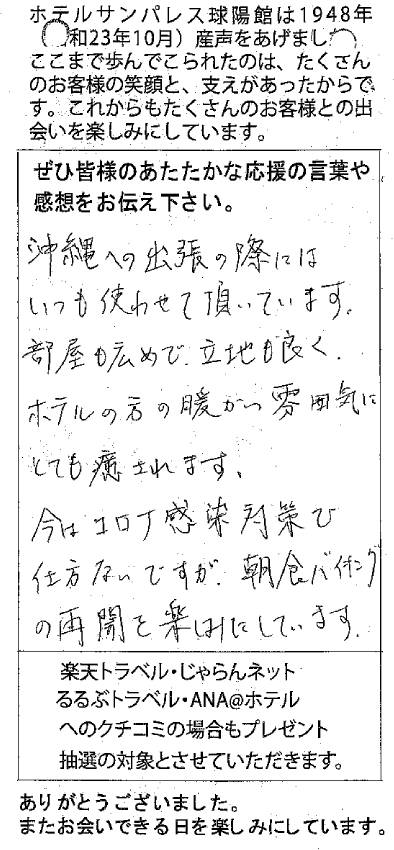 ホテルサンパレス球陽館は1948年
和23年10月）産声をあげまし
ここまで歩んでこられたのは、たくさん
のお客様の笑顔と、支えがあったからで
す。これからもたくさんのお客様との出
会いを楽しみにしています。
ぜひ皆様のあたたかな応援の言葉や
感想をお伝え下さい。
沖縄への出張の際には
いつも使わせて頂いています。
部屋も広めで、立地も良く、
ホテルの方の暖かい雰囲気に
とても癒されます。
今はコロナ感染対策で
仕方ないですが、朝食バイキング
の再開を楽しみにしています。
楽天トラベル・じゃらんネット
るるぶトラベル・ANA@ホテル
へのクチコミの場合もプレゼント
抽選の対象とさせていただきます。
ありがとうございました。
またお会いできる日を楽しみにしています。